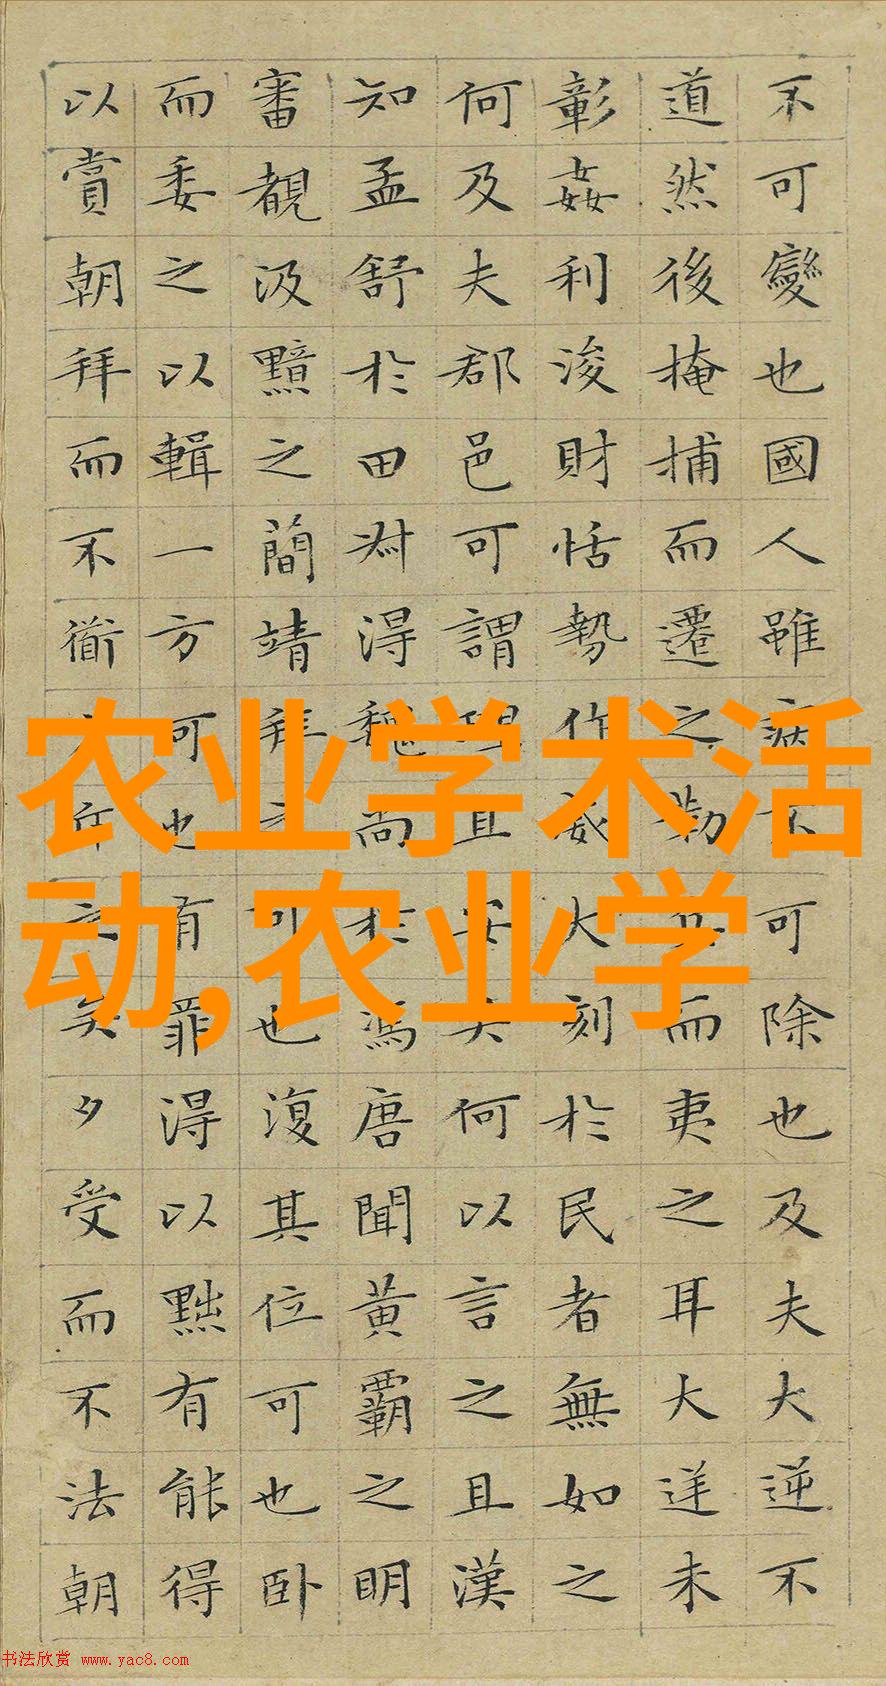 不可變也國人雖不可除也及夫大逆不
道然後掩捕而遷之勒兵而夷之耳大逆未
彰姦利浚財恬勢作威大刻於民者無如之
何及夫郡邑可謂理且安矣何以言之且漢
知孟舒於田叔得魏尚於馮唐聞黃霸之明
審覩汲黯之簡靖拜之可也復其位可也臥
而委之以輯一方可也有罪得以黜有能得
以賞朝拜而不衜夕斥之矣夕受而不法朝
农业学术活
动,农业学
书法欣赏 www.yac8.com